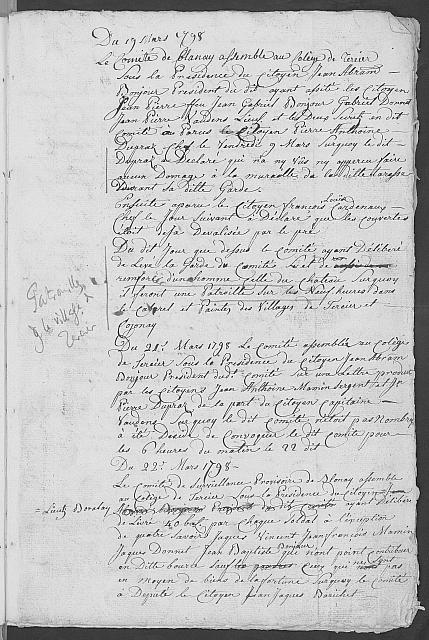 Du 19 Mars 1798
Le Comité de Blanay assemblé au Colége de Tercier
Sous la Présidence du Citoyen Jean Abram
Bonjour Président du dit ayant assité les Citoyen
Jean Pierre ffeu Jean Gabriel Bonjour Gabriel Donnet
Jean Pierre Vaudens Lieut et les Deux Secret. en dit
Comité au Parus le Citoyen Pierre Anthoine
Dupraz Chef le Vendredi 9 Mars Surquoy le dit
Dupraz a Déclaré qui na ny Vûs ny apperçu faire
aucun Domage à la muraille de la ditte
Durant Sa ditte Garde.
Ensuite aparu le Citoyen François Louis Cardenaux
Chef le Jour Suivant à Déclaré que les couvertes
étoit déjà Devalisée par le pré
Du dit Jour que dessus le Comité ayant Délibéré
de Levé la Garde du Comité et de
renforcé d'un homme Celle du Chateau Surquoy
il feront une Patrouille Sur les Neuf heures dans
le Cabaret et Pintes des Villages de Tercier et
Cojonay
Patrouille
9 h village
Tercier
Du 21e. Mars 1798 Le Comité assemblée au Colége
de Terseier Sous la Présidence du Citoyen Jean Abram
Bonjour Président dudt Comité sur une Lettre produit
par les Citoyens Jean Anthoine Mamin Sergent et Jn
Pierre Dupraz de la part du Citoyen Capitaine
Vaudens Surquoy le dit Comité n'étoit pas Nombreux
à été Décidé de Convoquer le dit Comité pour
les 6 heures du matin le 22 dit
Du 22e. Mars 1798
Le Comité de Surveillance Provisoire de Blonay assemblé
au Colége de Tercier Sous la Présidence du Citoyen
= Lieut. Bonjour
ayant Délibéré
de Livré 40 batz par Chaque Soldat à l'éxeption
de quatre Savoir Jaques Vincent Jean François Mamin
Jaques Donnet Jean Baptiste Bonjour que n'ont point contribuer
en Ditte bourse Sauf Ceux qui ne Sont pas
en moyen de biens de la fortune Surquoy le Comité
à Députe le Citoyen Jean Jaques Borichet